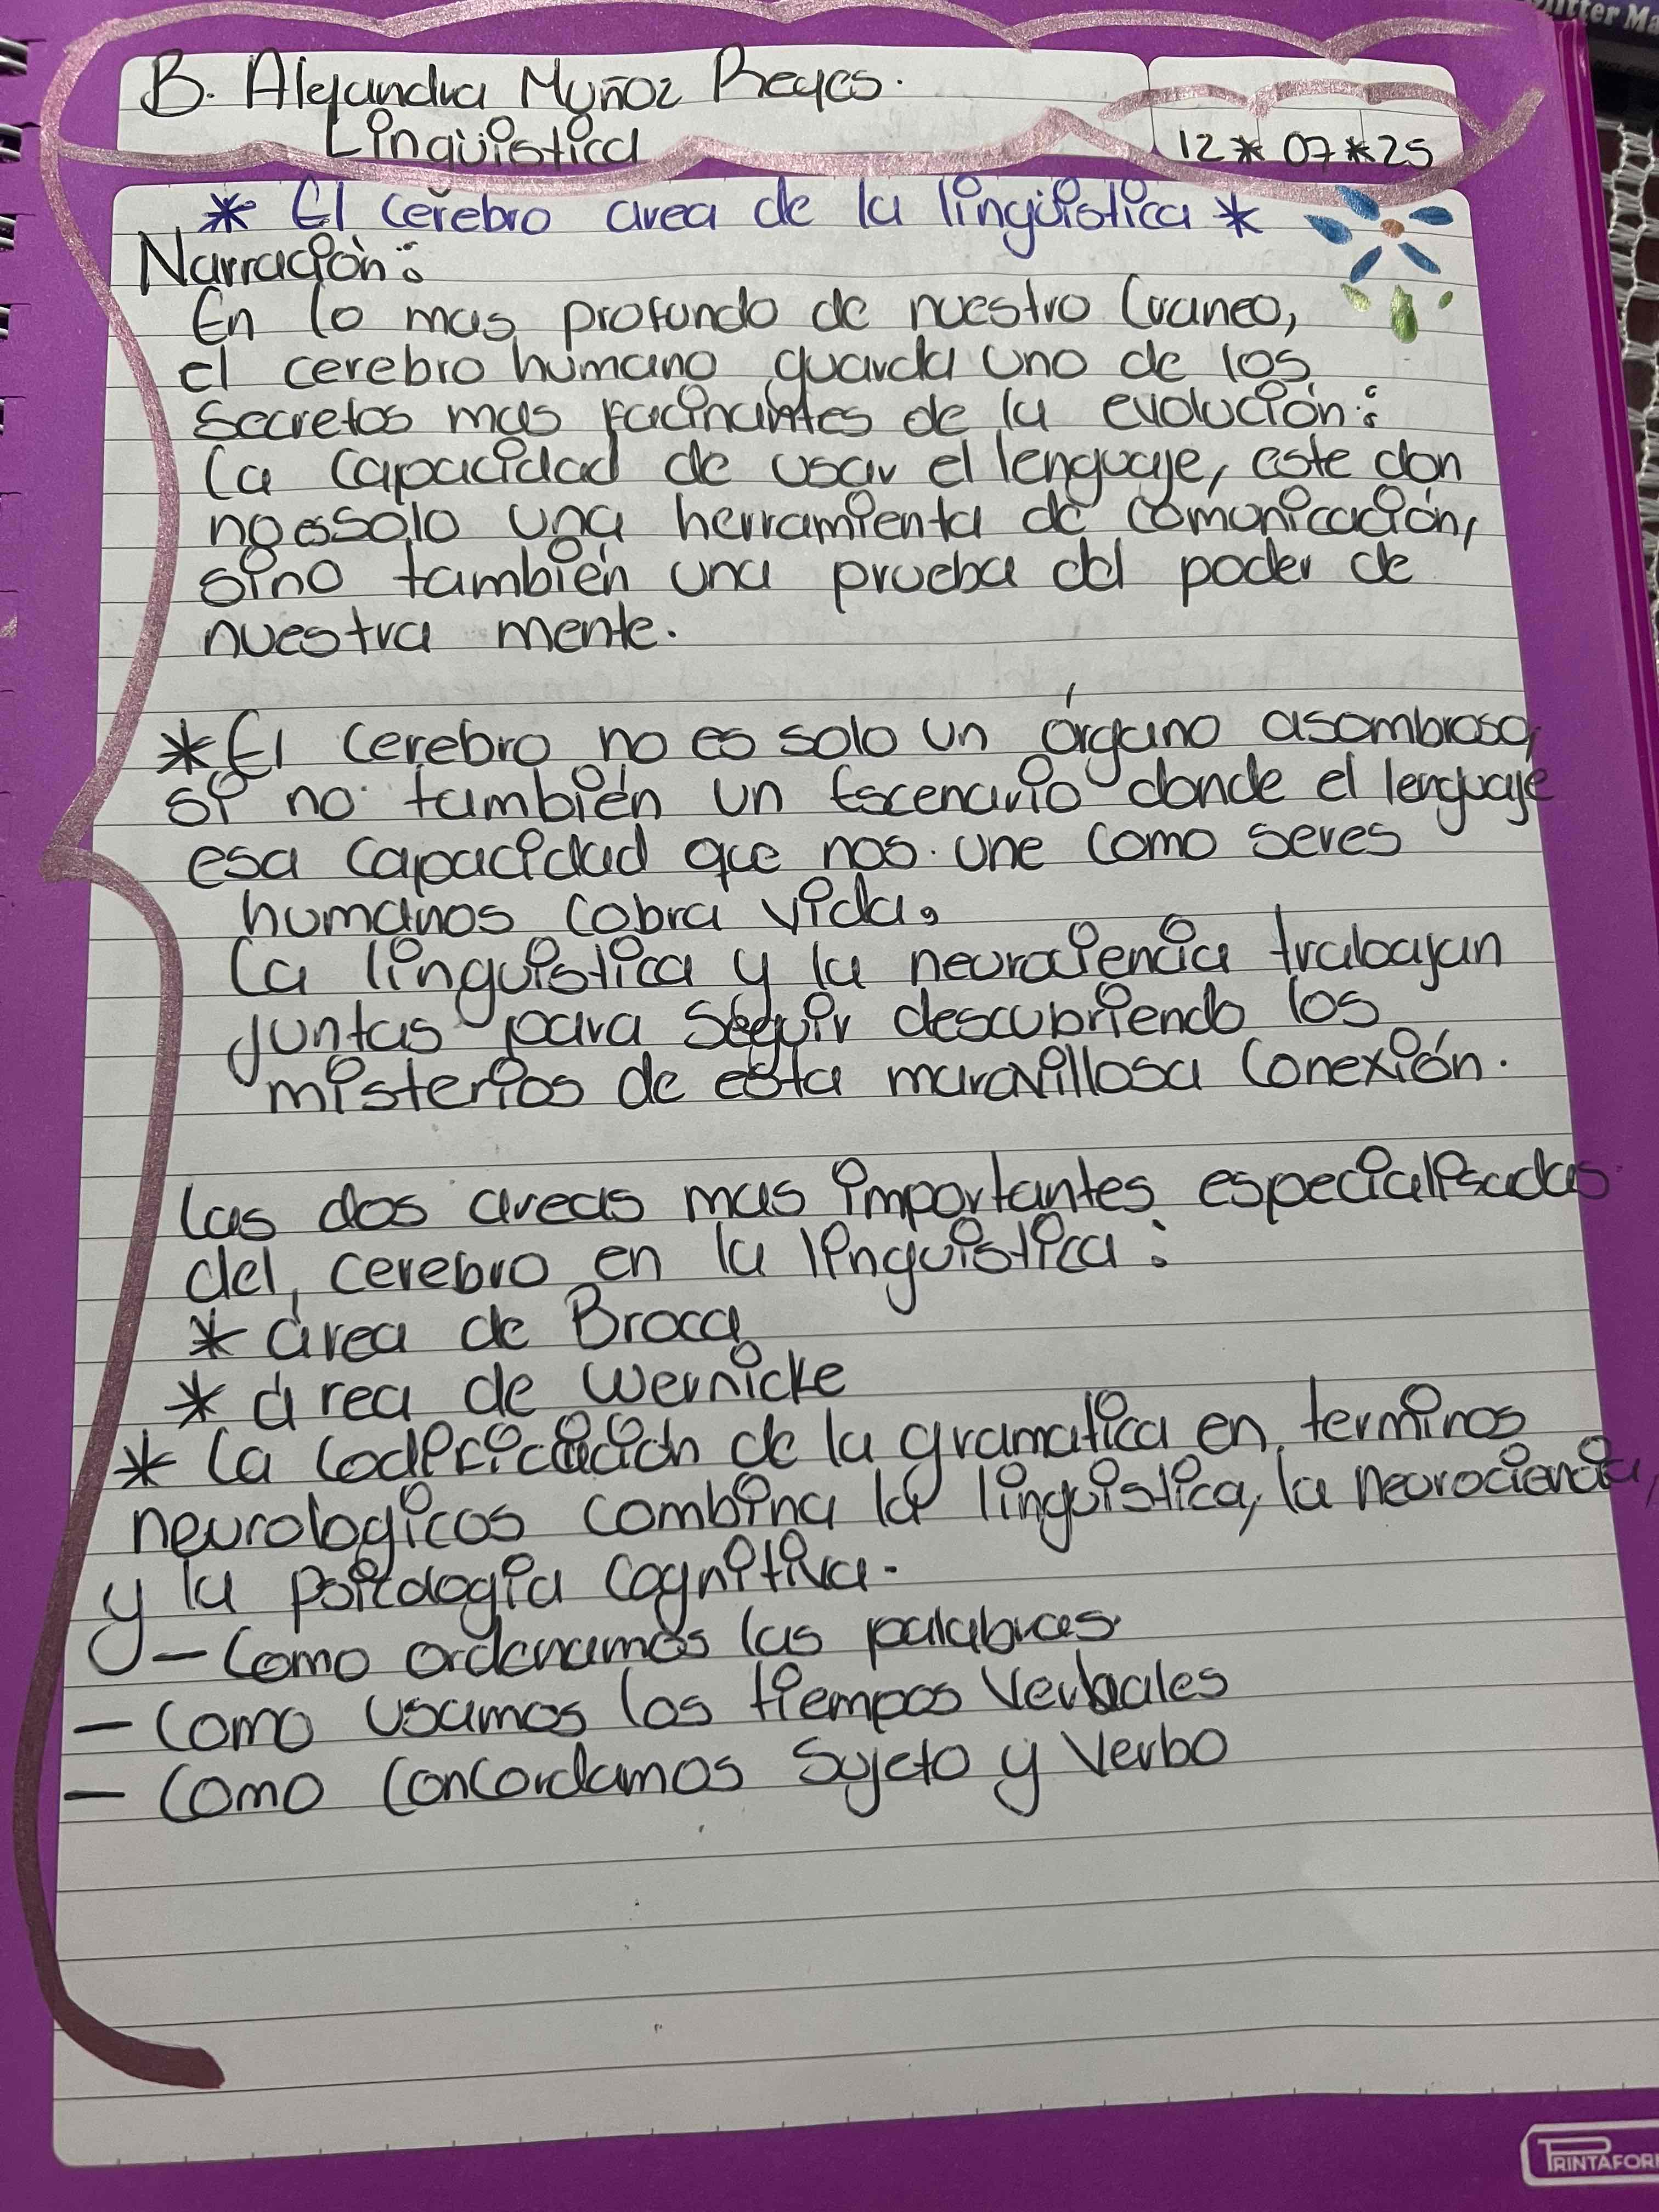 B. Alejandra Muñoz Reyes.
Lingüistica
12* 07*25
* El cerebro area de la lingüistica *
Narración:
En lo mas profundo de nuestro Craneo,
el cerebro humano guarda uno de los
secretos mas facinantes de la evolución:
La capacidad de usar el lenguaje, este don
no es solo una herramienta de comunicación,
sino también una prueba del poder de
nuestra mente.
* El cerebro no es solo un órgano asombroso,
si no también un Escenario donde el lenguaje
esa capacidad que nos une como seres
humanos cobra vida.
La linguistica y la neurociencia trabajan
juntas para seguir descubriendo los
misterios de esta maravillosa Conexión.
Las dos areas mas importantes especialisadas
del cerebro en la linguistica:
* área de Broca
* área de Wernicke
* La codificación de la gramatica en terminos
neurologicos combina la linguistica, la neurociencia,
y la psicologia cognitiva.
- Como ordenamos las palabras
- Como usamos los tiempos verbales
- Como concordamos Sujeto y Verbo
PRINTAFOR